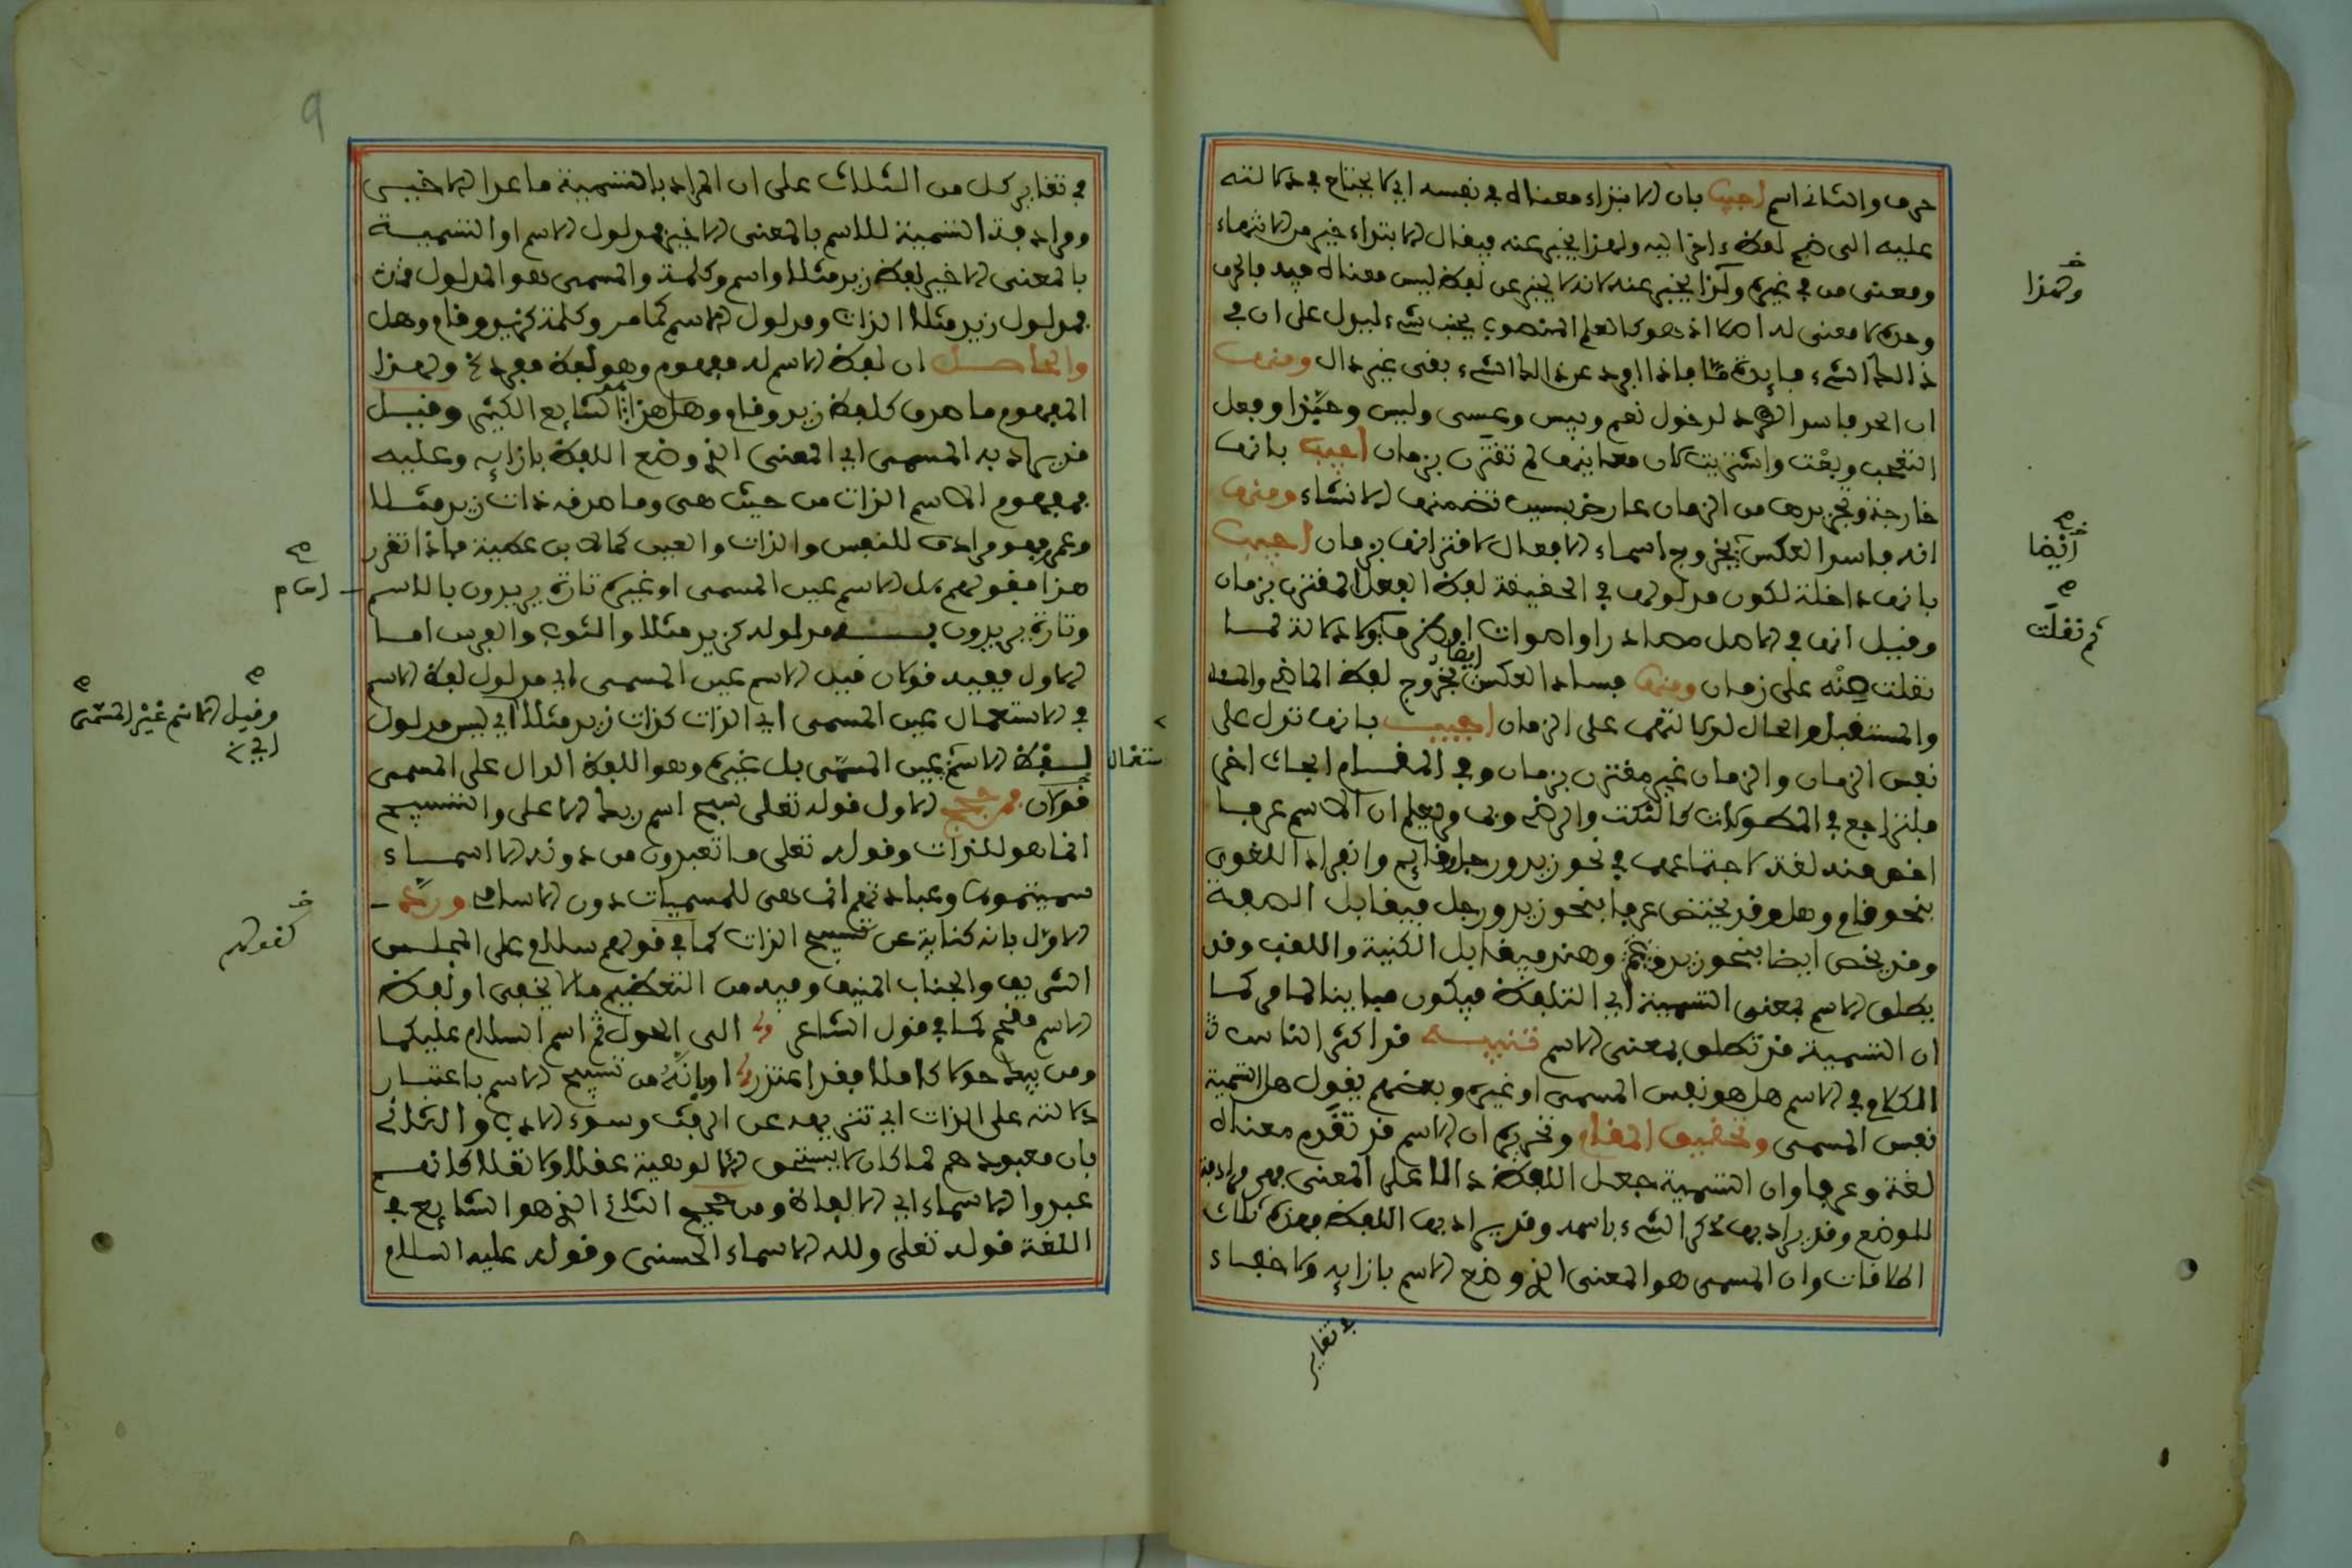 حرف والثانى اسم أجيب بان الابتداء معناه في نفسه اي لا يحتاج في دلالته
عليه الى ضم لفظ ءاخر اليه ولهذا يخبر عنه فيقال الابتداء خير من الانتهاء
ومعنى من في غيره ولذا لا يخبر عنه لانه لا يخبر عن لفظ ليس معناه فيه فالحرف
وحده لا معنى له اصلا اذ هو كالعلم المنصوب بجنب شيء ليدل على ان في
ذالك الشيء فايدة مّا فاذا افرد عن ذالك الشيء بقى غير دال ومنها
ان الحد فاسد الطرد لدخول نعم وبيس وعسى وليس وحبّذا وفعل
التعجب وبعْت واشتريت لان معانيها لم تقترن بزمان أجيب بانها
خارجة وتجريدها من الزمان عارض بسبب تضمنها الانشاء ومنها
انه فاسد العكس بخروج اسماء الافعال لاقترانها بزمان أجيب
بانها داخلة لكون مدلولها في الحقيقة لفظ الفعل المقترن بزمان
وقيل انها في الاصل مصادر او اصوات او ظروف ولا دلالة لما
نقلت عنْه على زمان ومنها فساد العكس أيضا بخروج لفظ الماضي
والمستقبل والحال لدلالتها على الزمان أجيب بانها تدل على
نفس الزمان والزمان غير مقترن بزمان وفي المقام ابحاث اخرى
فلتراجع في المطولات كالنكت والرضي وبما مر يعلم ان الاسم عرفا
اخص منه لغة لاجتماعهما في نحو زيد ورجل قايم وانفراد اللغوي
بنحو قام وهل وقد يختص عرفا بنحو زيد ورجل فيقابل الصفة
وقد يخص ايضا بنحو زيد وهند فيقابل الكنية واللقب وقد
يطلق الاسم بمعنى التسمية أي التلفظ فيكون مباينا لما مر كما
ان التسمية قد تطلق بمعنى الاسم تنبيه قد اكثر الناس
الكلام في الاسم هل هو نفس المسمى او غيره وبعضهم يقول هل التسمية
نفس المسمى وتحقيق المقام وتحريره ان الاسم قد تقدم معناه
لغة وعرفا وان التسمية جعل اللفظ دالا على المعنى فهي مرادفة
للوضع وقد يراد بها ذكر الشيء باسمه وقد يراد بها اللفظ فهذه ثلاث
اطلاقات وان المسمى هو المعنى الذي وضع الاسم بازايه ولا خفاء
في تغاير
ولهذا
أيْضا
ثم نقلَت
في تغاير كل من الثلاث على ان المراد بالتسمية ما عدا الاخير
ومرادفة التسمية للاسم بالمعنى الاخير فمدلول الاسم او التسمية
بالمعنى الاخير لفظ زيد مثلا واسم وكلمة والمسمى هو المدلول
فمدلول زيد مثلا الذات ومدلول الاسم كما مر وكلمة كزيد وقام وهل
والحاصل ان لفظ الاسم له مفهوم وهو لفظ مفرد الخ ولهذا
المفهوم ما صدق كلفظ زيد وقام وهل هذا الشايع الكثير وقيل
قد يراد به المسمى اي المعنى الذي وضع اللفظ بازايه وعليه
فمفهوم الاسم الذات من حيث هى وما صدقه ذات زيد مثلا
فهو مرادف للنفس والذات والعين كما لابن عطية فاذا تقرر
هذا فقولهم هل الاسم عين المسمى او غيره تارة يريدون بالاسم
وتارة يريدون به مدلوله كزيد مثلا والثوب والفرس اما
الاول ففيه قولان قيل الاسم عين المسمى اي مدلول لفظ الاسم
في الاستعمال عين المسمى اي الذات كذات زيد مثلا اي ليس مدلول
لفظ الاسم عين المسمّى بل غيره وهو اللفظ الدال على المسمى
قولان فمن حجج الاول قوله تعلى سبح اسم ربك الاعلى والتسبيح
انما هو للذات وقوله تعلى ما تعبدون من دونه الا اسماء
سميتموها وعبادتهم انما هى للمسميات دون الاسامى وردّ
الاوّل بانه كناية عن تسبيح الذات كما في قولهم سلام على المجلس
الشريف والجناب المنيف وفيه من التعظيم ما لا يخفى او لفظ
الاسم مقحم كما في قول الشاعر الى الحول ثم اسم السلام عليكما
ومن يبك حولا كاملا فقد اعتذر او بانّه من تسبيح الاسم باعتبار
دلالته على الذات اي تنزيهه عن الرفث وسوء الادب والثانى
بان معبودهم لما كان لا يستحق الالوهية عقلا ولا نقلا كانهم
عبدوا الاسماء اي الالفاظ ومن حجج الثانى الذي هو الشايع في
اللغة قوله تعلى ولله الاسماء الحسنى وقوله عليه السلام
9
امام
وقيل الاسْم غيْر المسّمى
اي الخ
ستعْمال
كقوله